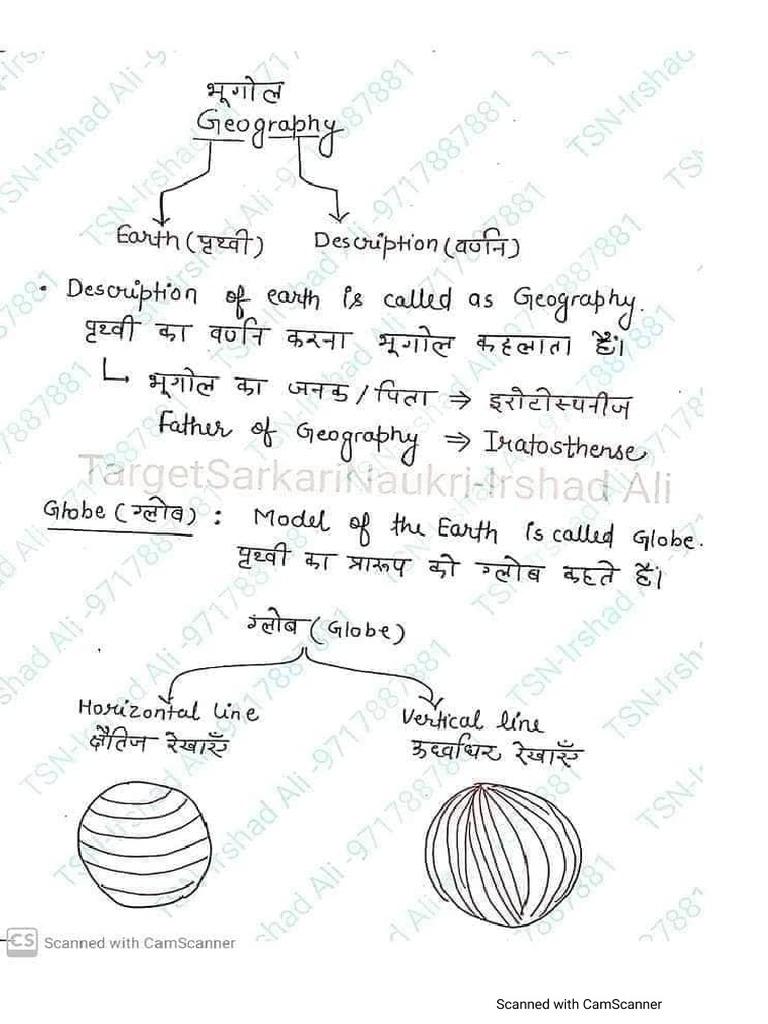 भूगोल
Geography
Earth (पृथ्वी) Description (वर्णन)
• Description of earth is called as Geography.
पृथ्वी का वर्णन करना भूगोल कहलाता हैं।
भूगोल का जनक / पिता ⇒ इरोटोस्पनीज
Father of Geography ⇒ Iratosthense
TargetSarkariNaukri-Irshad Ali
Globe (ग्लोब) : Model of the Earth is called Globe.
पृथ्वी का प्रारूप को ग्लोब कहते हैं।
ग्लोब (Globe)
Horizontal line Vertical line
क्षैतिज रेखाएँ ऊर्ध्वाधर रेखाएँ
TSN-Irshad Ali -9717887881
CS Scanned with CamScanner
Scanned with CamScanner